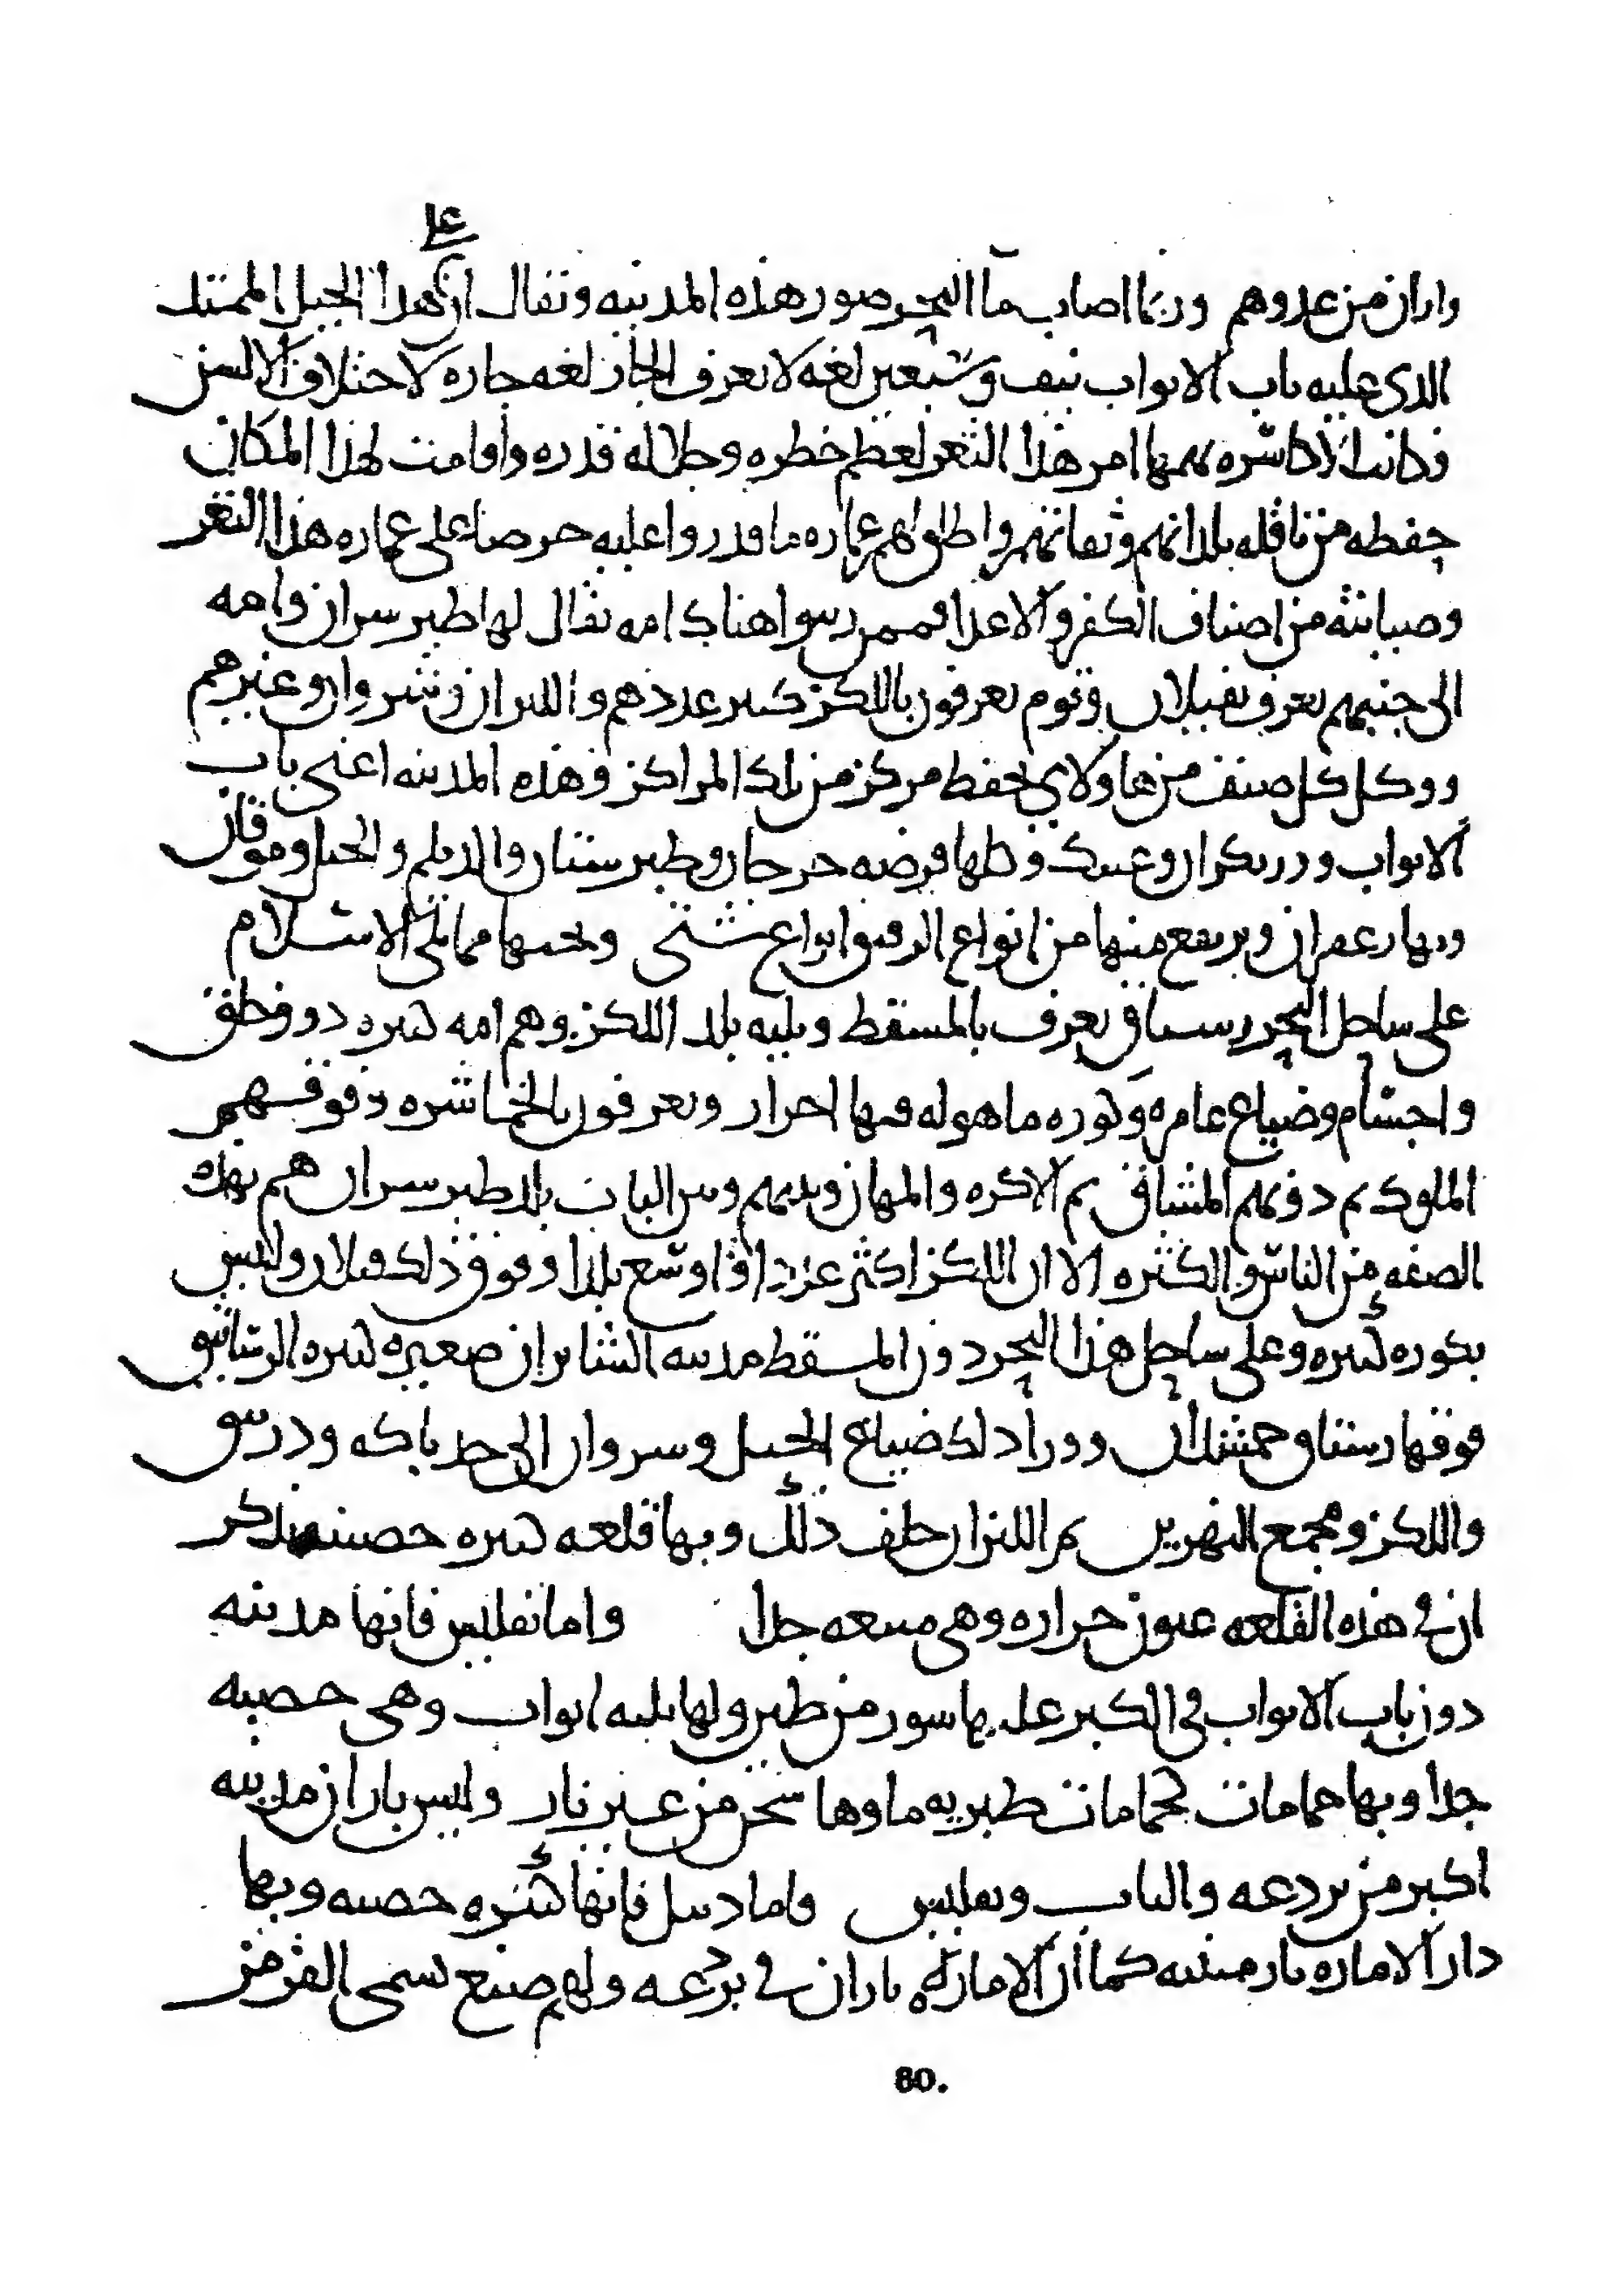 على
واران من عدوهم وربما اصاب ما البحر صور هذه المدينه ويقال ان هذا الجبل الممتد
الذى عليه باب الابواب نيف وسبعين لغه لا يعرف الجار لغه جاره لاختلاف الالسن
وكانت الاكاسره يهمها امر هذا الثغر لعظم خطره وجلاله قدره واقامت لهذا المكان
حفظه من ناقله بلدانهم وثقاتهم واطلق لهم عماره ما قدروا عليه حرصا على عماره هذا الثغر
وصيانته من اصناف الكفر والاعدا فممن رتبوا هناك امه يقال لها طبرسران وامه
الى جنبهم تعرف بفيلان وقوم يعرفون باللكز كثير عددهم والليران وشروان وغيرهم
ووكل كل صنف من هاولاى بحفظ مركز من تلك المراكز وهذه المدينه اعنى باب
الابواب ودربكران وعسك وكلها فرضه جرجان وطبرستان والديلم والجبل وموقان
وبها زعفران ويرتفع منها من انواع الرقيق انواع شتى وتحتها مما يلى الاسلام
على ساحل البحر رستاق يعرف بالمسقط ويليه بلد اللكز وهم امه كبيره ذو وخلق
واجسام وضياع عامره وكوره ماهوله فيها احرار ويعرفون بالخماشره وفوقهم
الملوك ثم دونهم المشاق ثم الاكره والمهان وبينهم وبين الباب بلد طبرسران هم بهذه
الصفه من الناس والكثره الا ان اللكز اكثر عددا واوسع بلدا وفوق ذلك فيلان وليس
بكوره كبيره وعلى ساحل هذا البحر دون المسقط مدينه الشابران صغيره كبيره الرساتيق
فوقها رستاق جمشدان وورا ذلك ضياع الجبل وسروان الى حد باكه ودرنيق
واللكز ومجمع النهرين ثم الليزان خلف ذلك وبها قلعه كبيره حصينه يذكر
ان في هذه القلعه عيون حراره وهى منيعه جدا واما تفليس فانها مدينه
دون باب الابواب في الكبر عليها سور من طين ولها ثلثه ابواب وهى خصبه
جدا وبها حمامات كحمامات طبريه ماوها سخن من غير نار وليس باران مدينه
اكبر من بردعه والباب وتفليس واما دبيل فانها كبيره خصبه وبها
دار الاماره بارمينيه كما ان الاماره باران في بردعه ولهم صبغ يسمى القرمز
80.